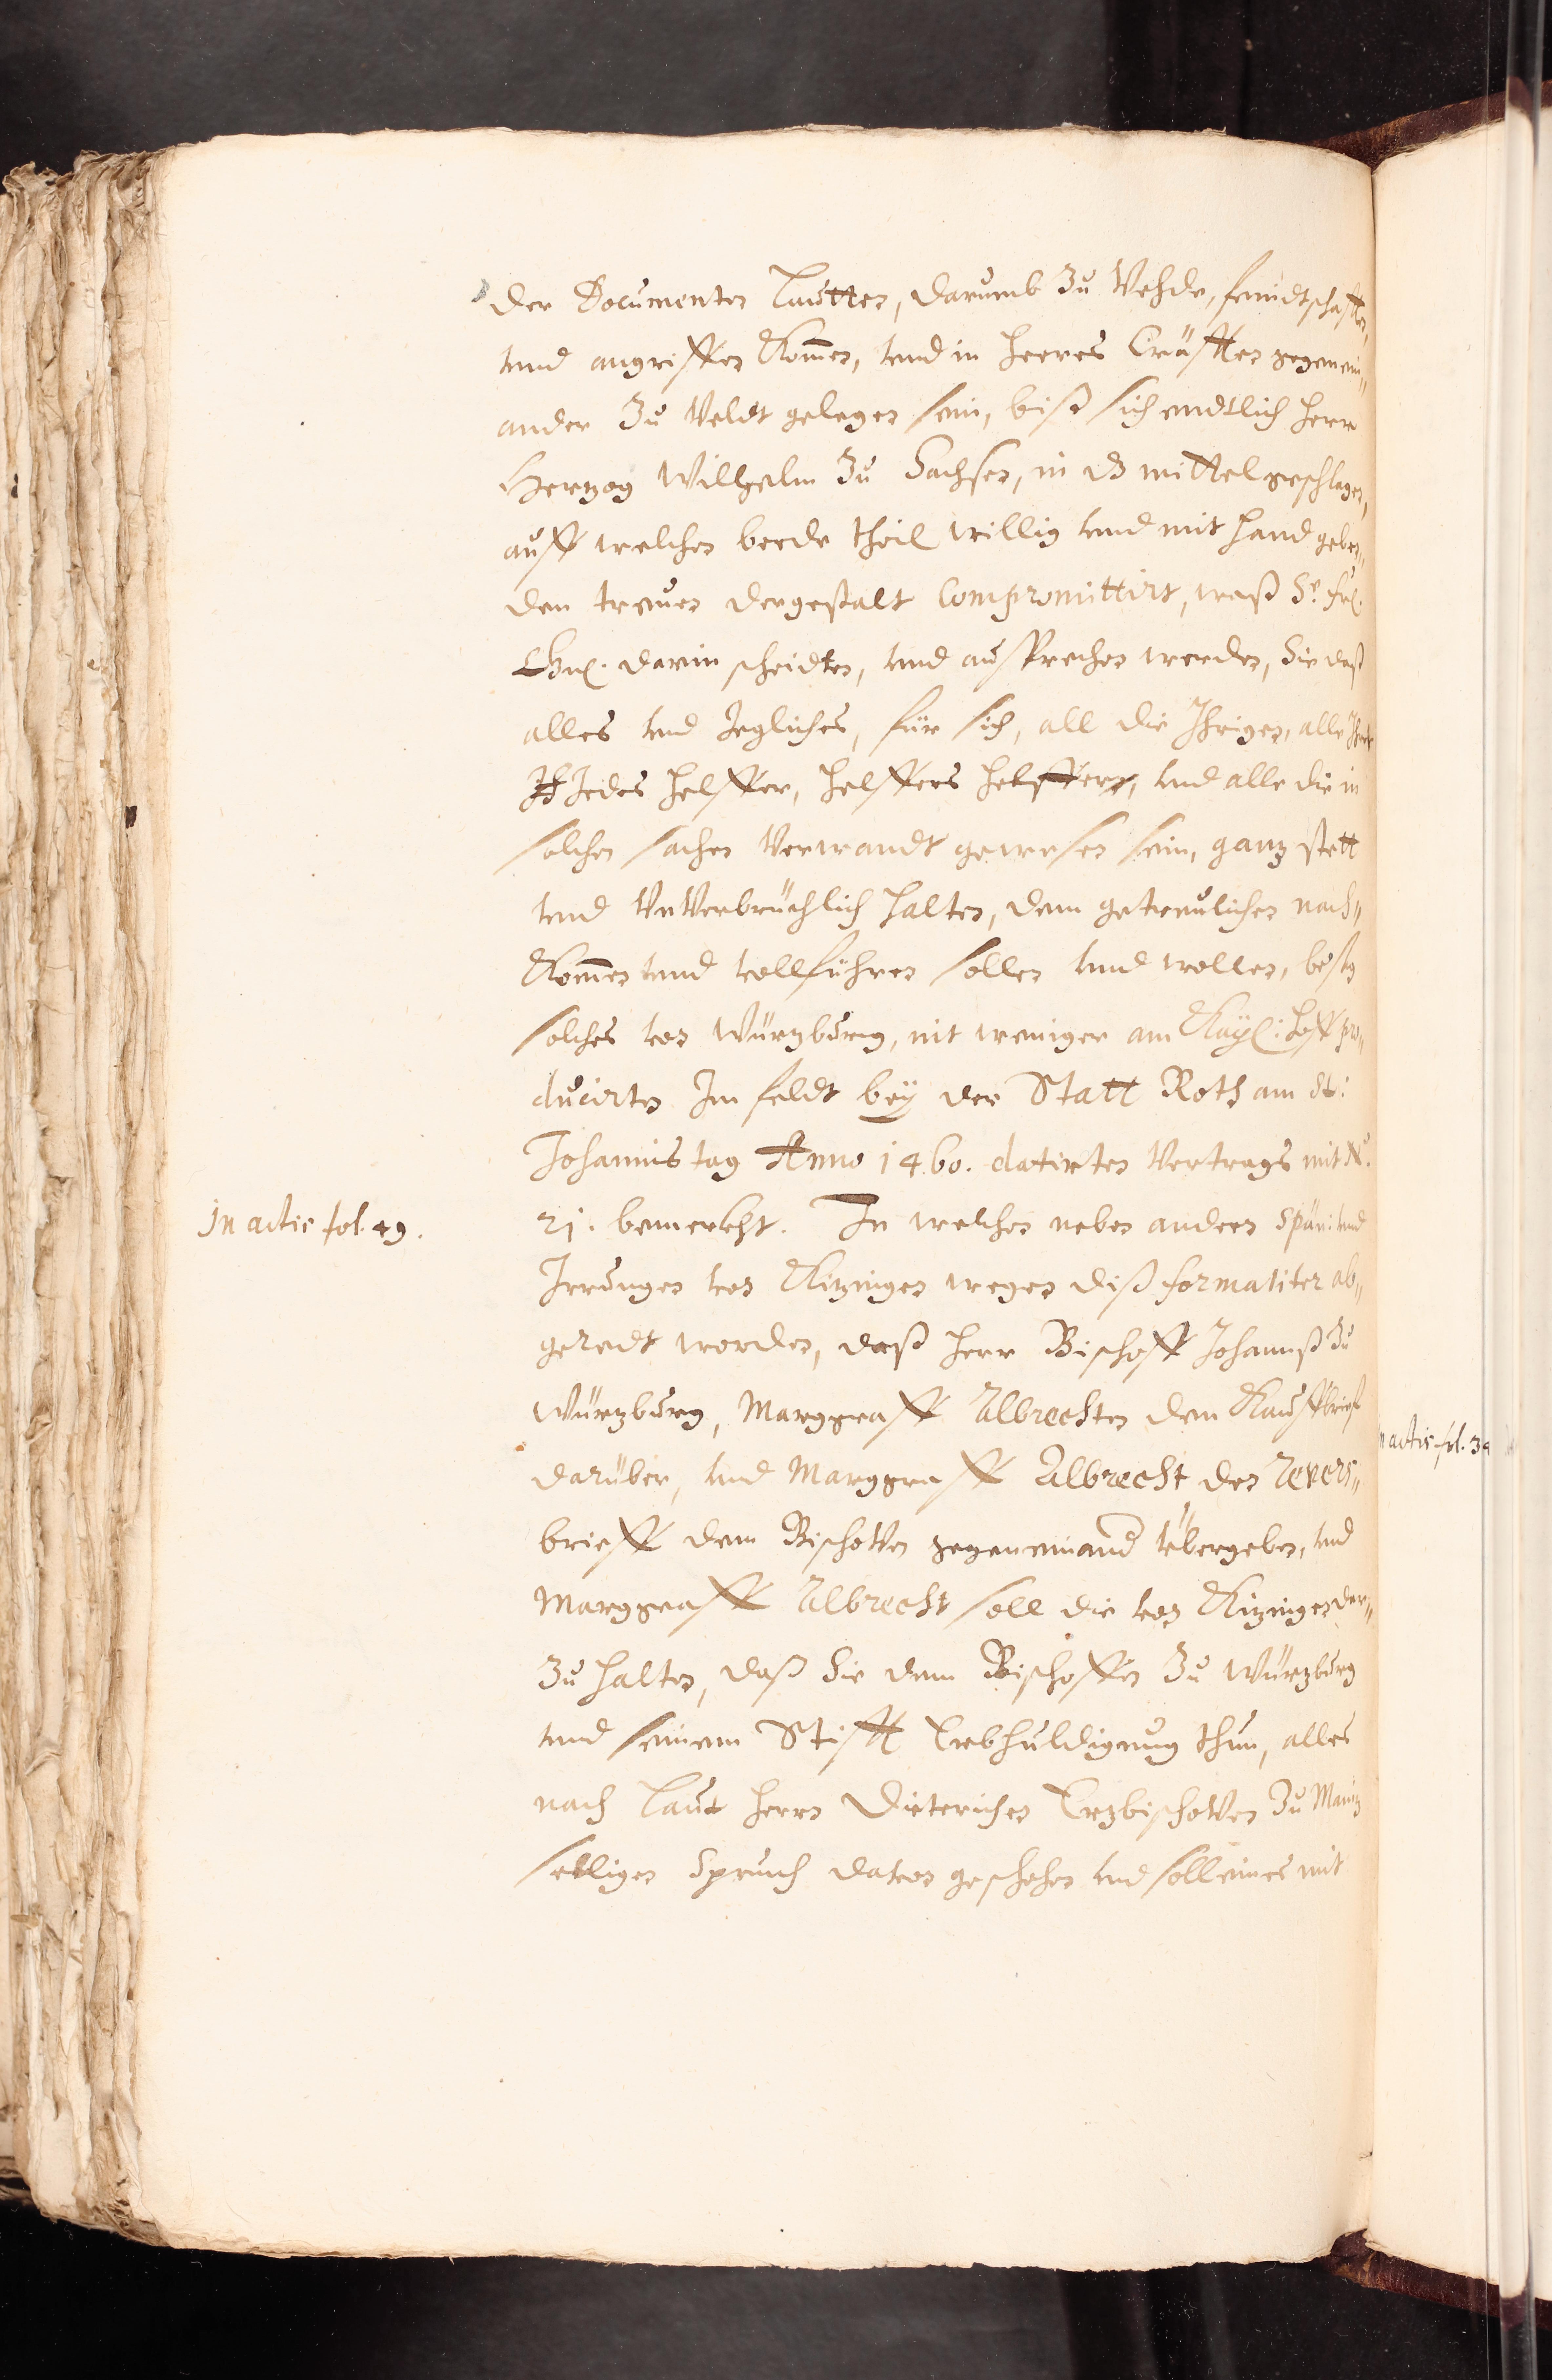 der Documenten lautten, darumb zu Vehde, feindtschafften,
vnd angriffen kommen, vnd in heeres Cräfften gegenein„
ander zu Veldt gelegen sein, biß sich endtlich herr
Hertzog Wilhelm zu Sachsen, in dz mittel geschlagen,
auff welchen beede theil willig vnd mit hand geben„
den treuen dergestalt Compromittirt, waß Se. frl.
Gn. darin scheidten, vnd ausprechen werden, Sie daß
alles vnd Jegliches, für sich, all die Ihrigen, alle Ihr
Jedes helffer, helffers helffern, vnd alle die in
solchen sachen Verwandt gewesen sein, gantz stett
vnd VnVerbrüchlich halten, dem getreulichen nach„
kommen vnd vollführen sollen vnd wollen, besag
solches von Würtzburg, nit weniger am Kayl: hoff pro„
ducirten Im feldt bey der Statt Roth am St:
Johannis tag Anno 1460. datirten Vertrags mit No.
21. bemerkht. In welchen neben andern Spän: vnd
In actis fol. 49.
Irrungen von Kitzingen wegen diß formaliter ab„
geredt worden, daß herr Bischoff Johannß zu
Würtzburg, Marggraff Albrechten den Kauffbrieff
darüber, vnd Marggraff Albrecht den Revers„
brieff dem Bischoven gegeneinand übergeben, vnd
Marggraff Albrecht soll die von Kitzingen dar„
zu halten, daß Sie dem Bischoffen zu Würtzburg
vnd seinem Stifft Erbhuldigung thun, alles
nach laut herrn Dieterichen Ertzbischoven zu Maintz
seeligen Spruch davon geschehen vnd soll eines mit
n actis fol. 34